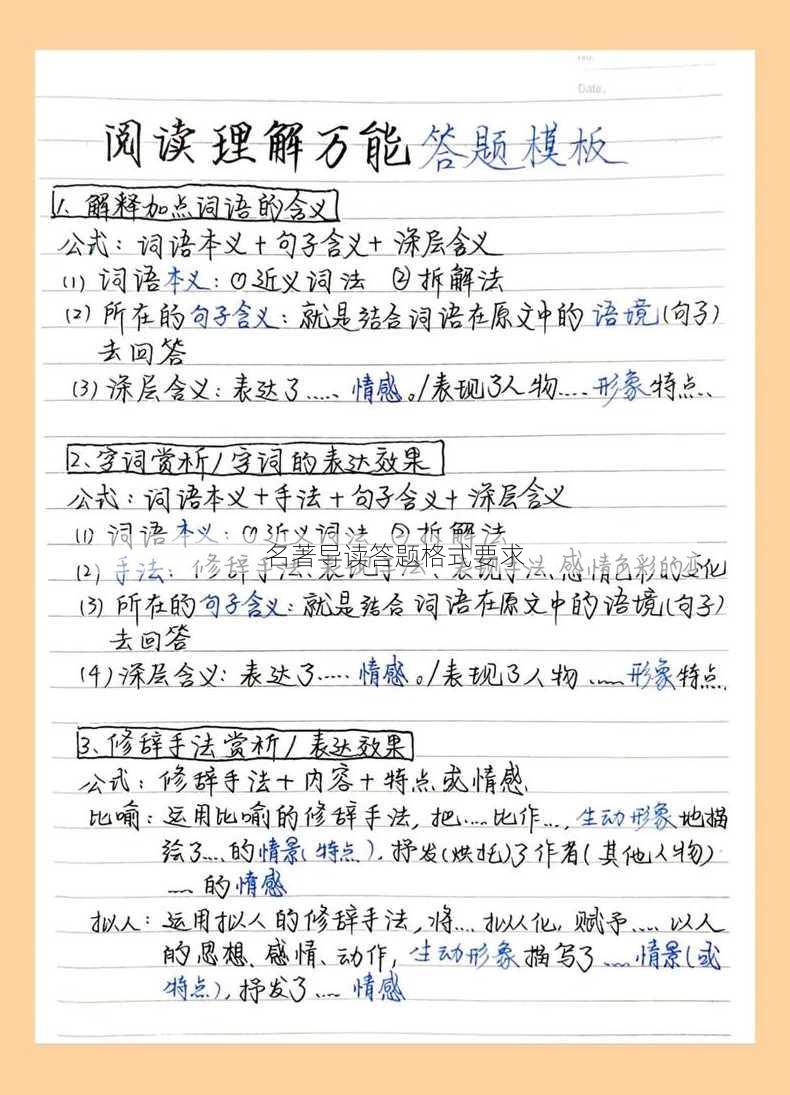 No.
Date.
阅读理解万能答题模板
1、解释加点词语的含义
公式：词语本义+句子含义+深层含义
(1) 词语本义：①近义词法 ②拆解法
(2) 所在的句子含义：就是结合词语在原文中的语境(句子)
去回答
(3) 深层含义：表达了……情感。/表现了人物……形象特点、
2、字词赏析/字词的表达效果
公式：词语本义+手法+句子含义+深层含义
(1) 词语本义：①近义词法 ②拆解法
名著导读答题格式要求
(2) 手法：修辞手法、表现手法、表现手法、感情色彩的变化
(3) 所在的句子含义：就是结合词语在原文中的语境(句子)
去回答
(4) 深层含义：表达了……情感。/表现了人物……形象特点
3、修辞手法赏析/表达效果
公式：修辞手法+内容+特点或情感
比喻：运用比喻的修辞手法，把……比作…，生动形象地描
绘了…的情景(特点)，抒发(烘托)了作者(其他人物)
……的情感
拟人：运用拟人的修辞手法，将…拟人化，赋予……以人
的思想、感情、动作，生动形象描写了……情景(或
特点)，抒发了……情感